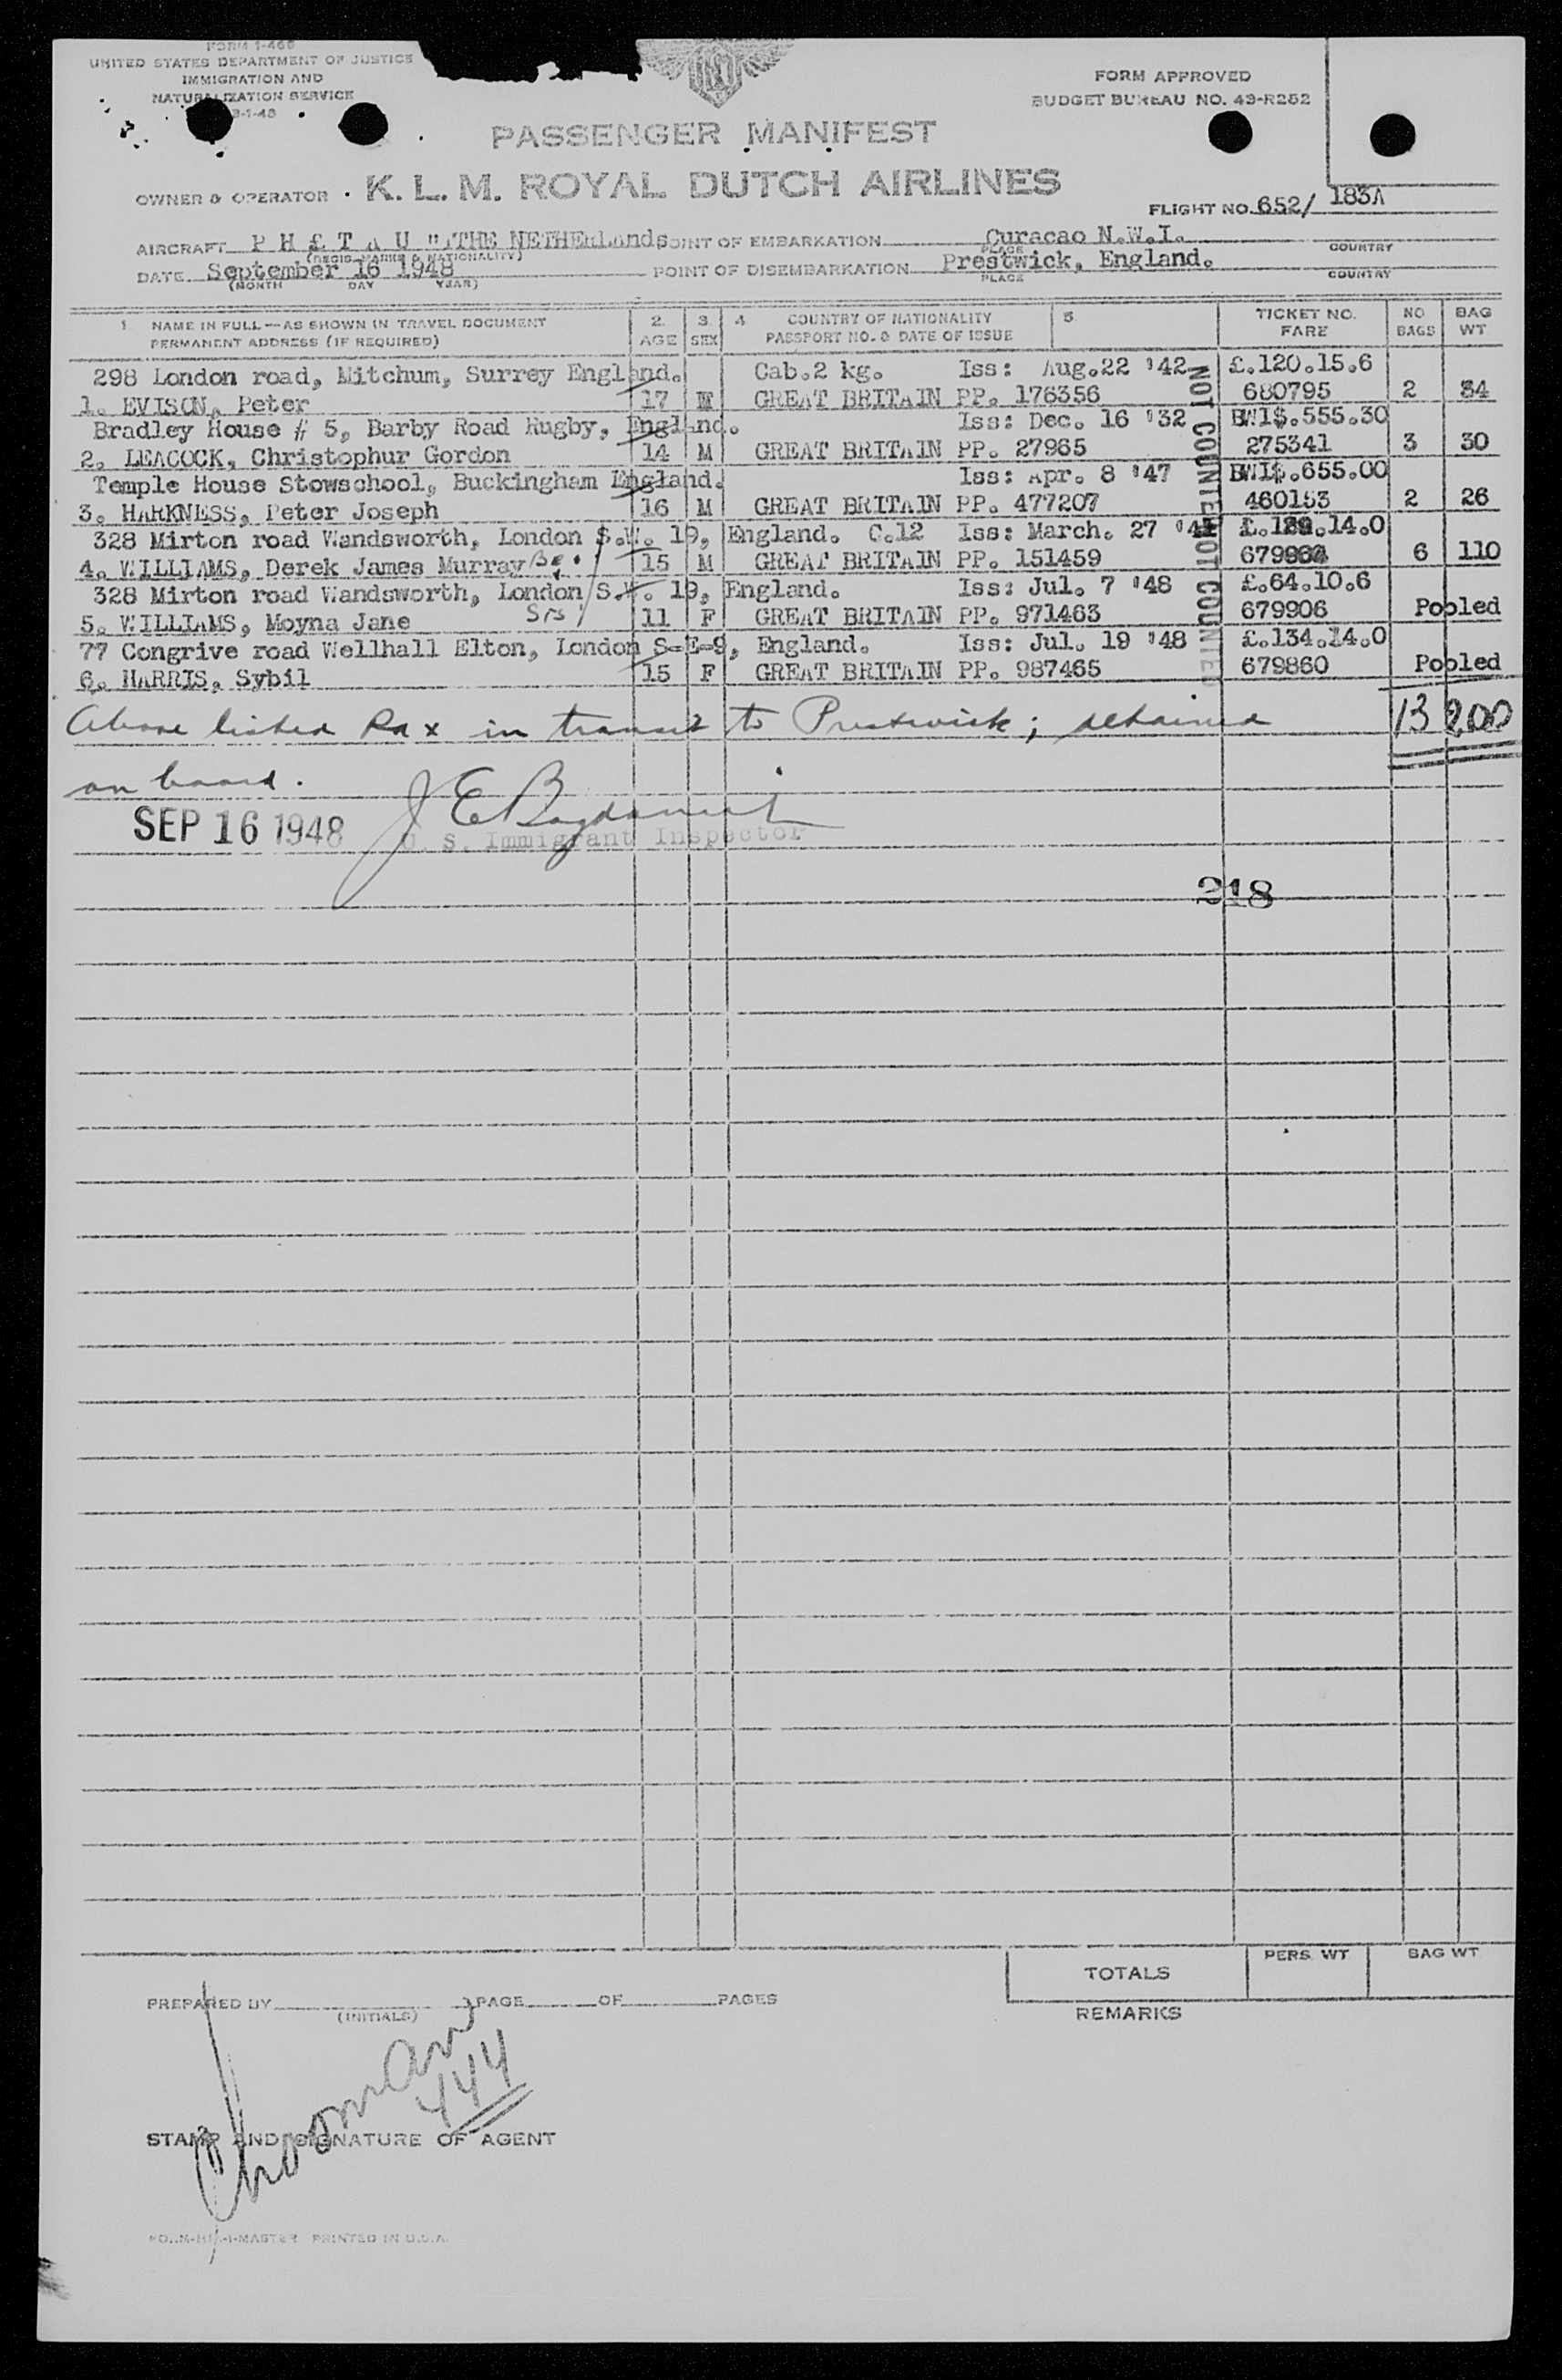 FORM I-466
UNITED STATES DEPARTMENT OF JUSTICE
IMMIGRATION AND
NATURALIZATION SERVICE
FORM APPROVED
BUDGET BUREAU NO. 43-R252
PASSENGER MANIFEST
OWNER & OPERATOR K. L. M. ROYAL DUTCH AIRLINES
FLIGHT NO. 652/ 183A
AIRCRAFT P H £ T A U "THE NETHERLands POINT OF EMBARKATION Curacao N.W.I.
(REGIS. MARKS & NATIONALITY) PLACE COUNTRY
DATE September 16 1948 POINT OF DISEMBARKATION Prestwick, England.
(MONTH DAY YEAR) PLACE COUNTRY
1 NAME IN FULL—AS SHOWN IN TRAVEL DOCUMENT 2. 3. 4 COUNTRY OF NATIONALITY 5 TICKET NO. NO BAG
PERMANENT ADDRESS (IF REQUIRED) AGE SEX PASSPORT NO. & DATE OF ISSUE FARE BAGS WT
298 London road, Mitchum, Surrey England. Cab.2 kg. Iss: Aug.22 '42 £.120.15.6
1. EVISON, Peter 17 M GREAT BRITAIN PP. 176356 680795 2 34
Bradley House # 5, Barby Road Rugby, England. Iss: Dec. 16 '32 BWI$.555.30
2. LEACOCK, Christophur Gordon 14 M GREAT BRITAIN PP. 27965 275341 3 30
Temple House Stowschool, Buckingham England. Iss: Apr. 8 '47 BWI$.655.00
3. HARKNESS, Peter Joseph 16 M GREAT BRITAIN PP. 477207 460153 2 26
328 Mirton road Wandsworth, London S.W. 19, England. C.12 Iss: March. 27 £.129.14.0
4. WILLIAMS, Derek James Murray 15 M GREAT BRITAIN PP. 151459 6 110
328 Mirton road Wandsworth, London S.W. 19, England. Iss: Jul. 7 '48 £.64.10.6
5. WILLIAMS, Moyna Jane Sis 11 F GREAT BRITAIN PP. 971463 679906 Pooled
77 Congrive road Wellhall Elton, London S-E-9, England. Iss: Jul. 19 '48 £.134.14.0
6. HARRIS, Sybil 15 F GREAT BRITAIN PP. 987465 679860 Pooled
NOT COUNTED
NOT COUNTED
Above listed Pax in transit to Prestwick; retained 13 200
on board.
SEP 16 1948
U. S. Immigrant Inspector
218
TOTALS PERS. WT BAG WT
PREPARED BY PAGE OF PAGES
(INITIALS)
REMARKS
444
STAMP AND SIGNATURE OF AGENT
MASTER PRINTED IN U.S.A.